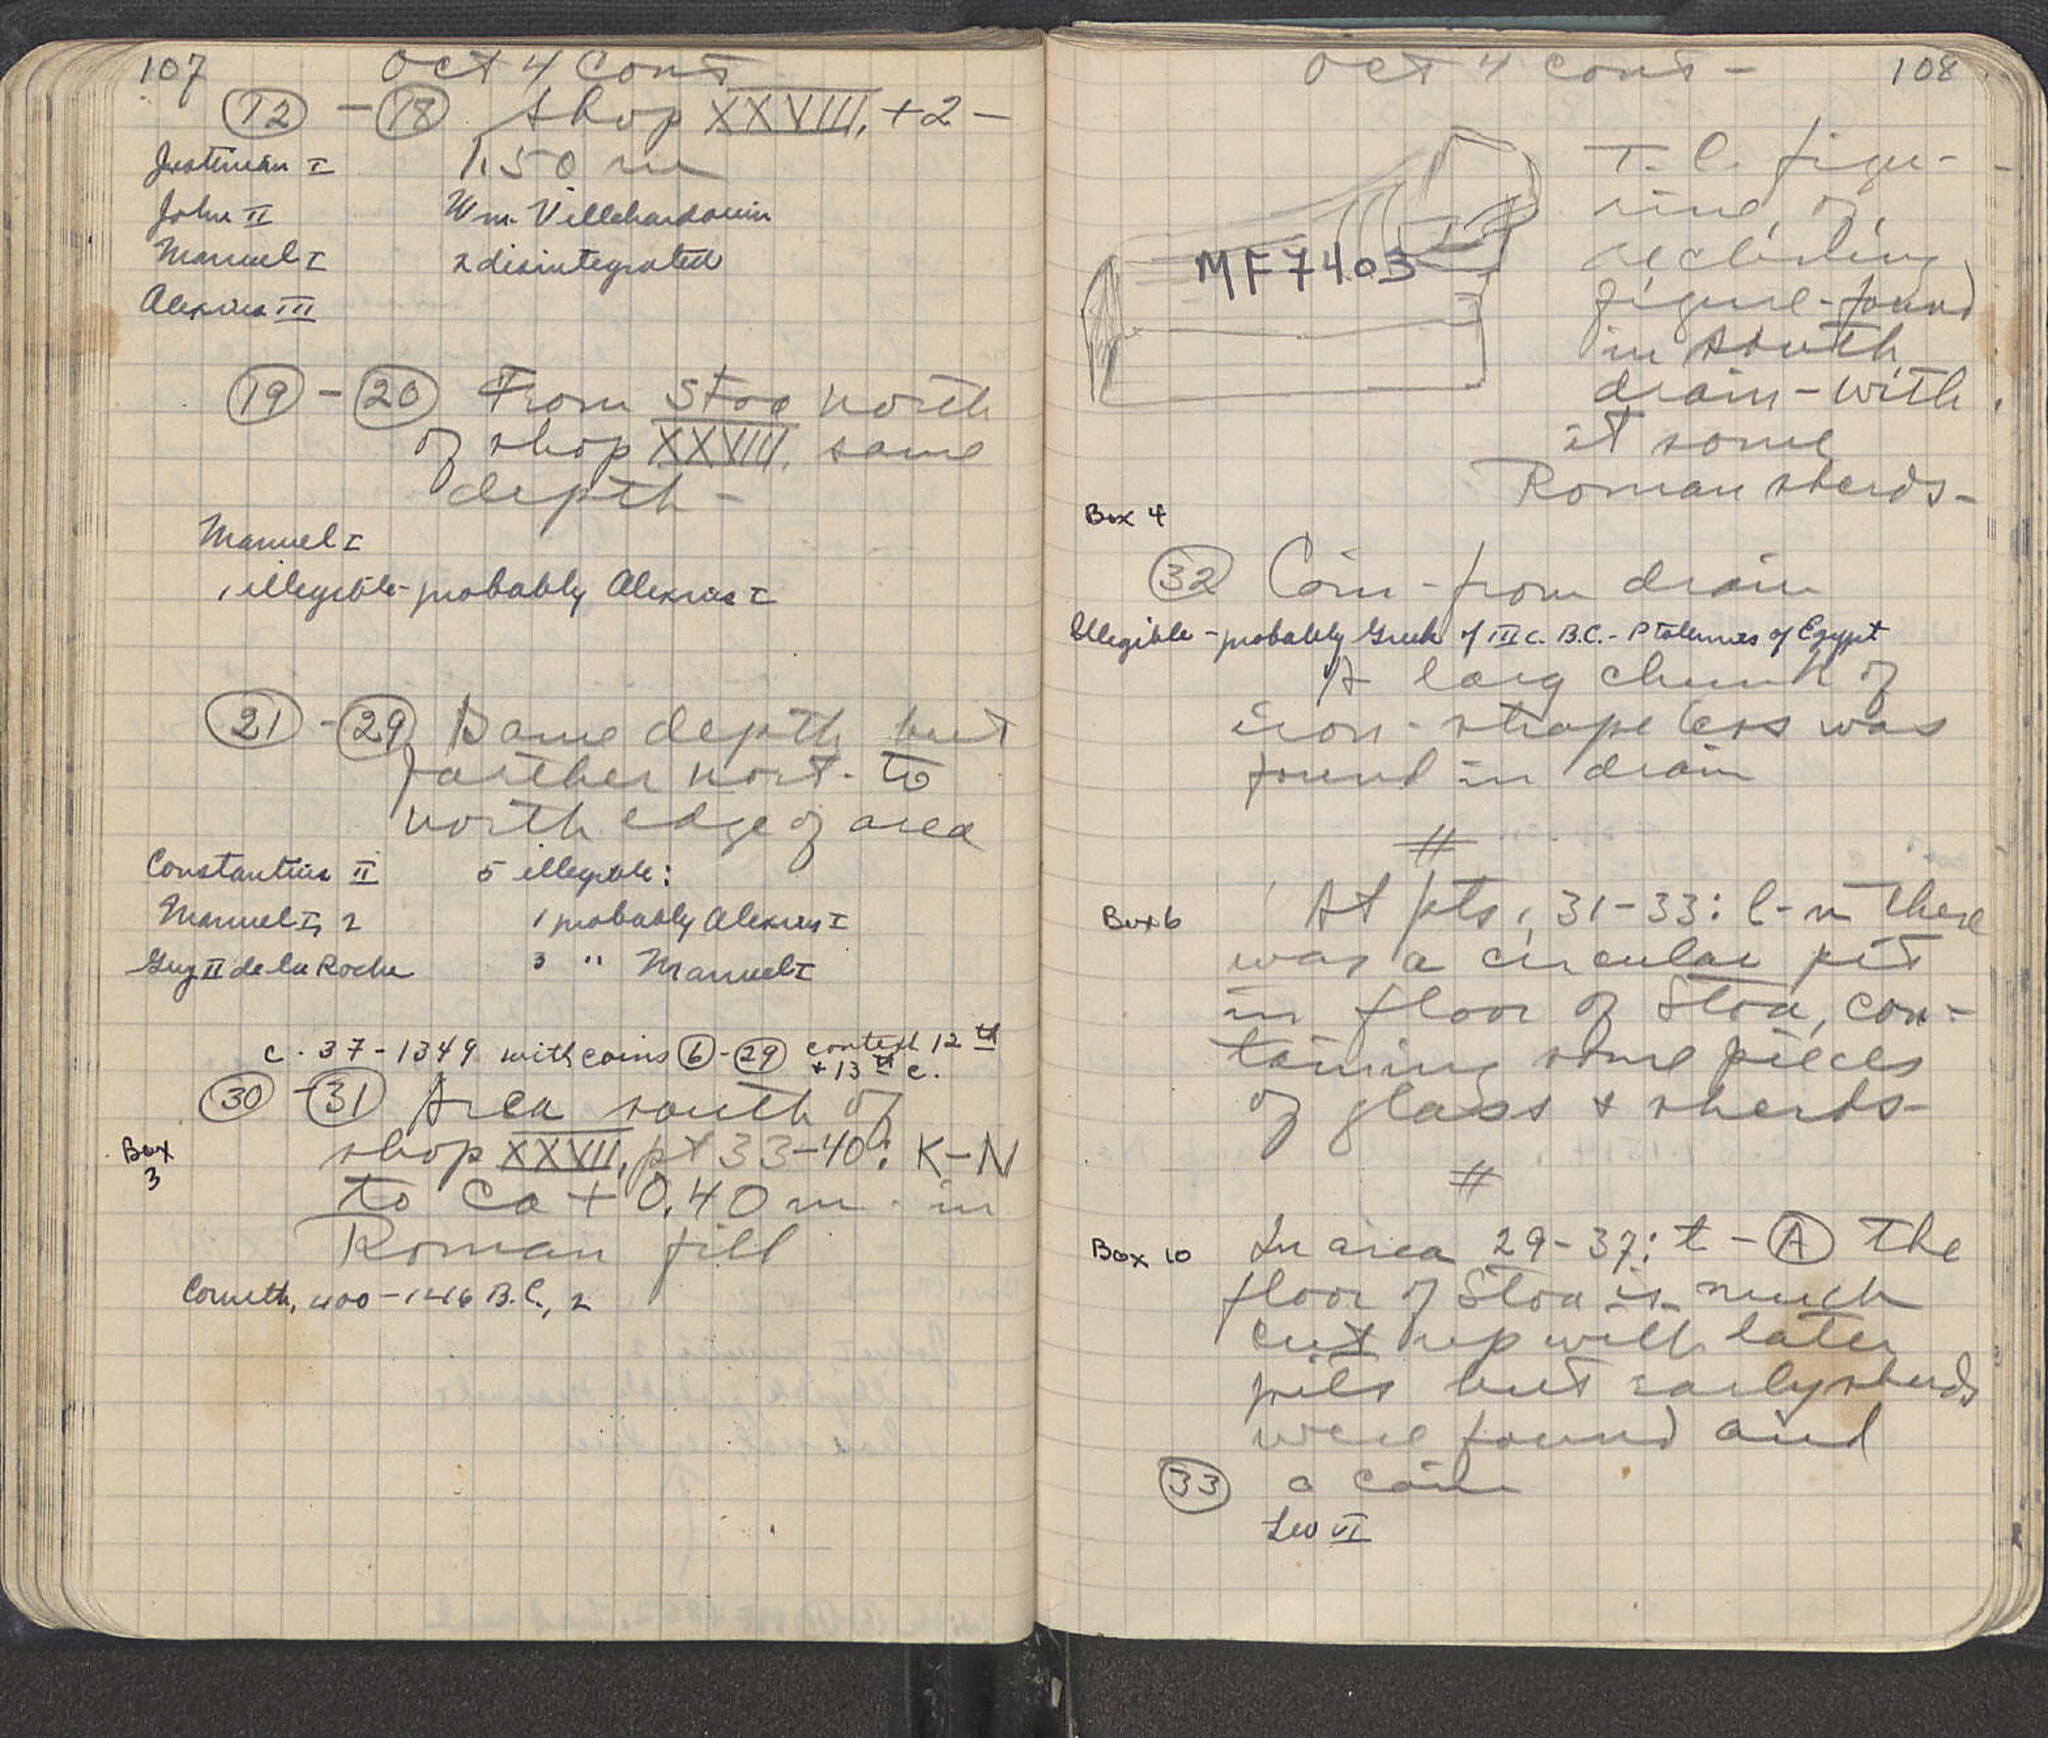 107 Oct 4 Cont
(12) - (18) shop XXVIII, +2 -
1.50 m
Justinian I
John II
Manuel I
Alexius III
Wm. Villehardouin
2 disintegrated
(19) - (20) From Stoa north
of shop XXVIII, same
depth -
Manuel I
1 illegible - probably Alexius I
(21) - (29) Same depth but
farther nort. to
north edge of area
Constantius II
Manuel I, 2
Guy II de la Roche
5 illegible:
1 probably Alexius I
3 " Manuel I
c. 37-1349 with coins (6)-(29) context 12th
+ 13th c.
(30) - (31) Area south of
shop XXVII, pt 33-40: K-N
Box
3
to ca + 0.40 m. in
Roman fill
Corinth, 400-146 B.C., 2
Oct 4 cont - 108
MF7403
T. C. figu-
rine, of
reclining
figure - found
in south
drain - with
it some
Roman sherds -
Box 4
(32) Coin - from drain
Illegible - probably Greek of III c. B.C. - Ptolemies of Egypt
A larg chunk of
iron - shapeless was
found in drain
#
Box 6
At pts, 31-33: l-m there
was a circular pit
in floor of Stoa, con-
taining some pieces
of glass + sherds -
#
Box 10
In area 29-37: t - (A) the
floor of Stoa is much
cut up with later
pits but early sherds
were found and
(33) a coin
Leo VI